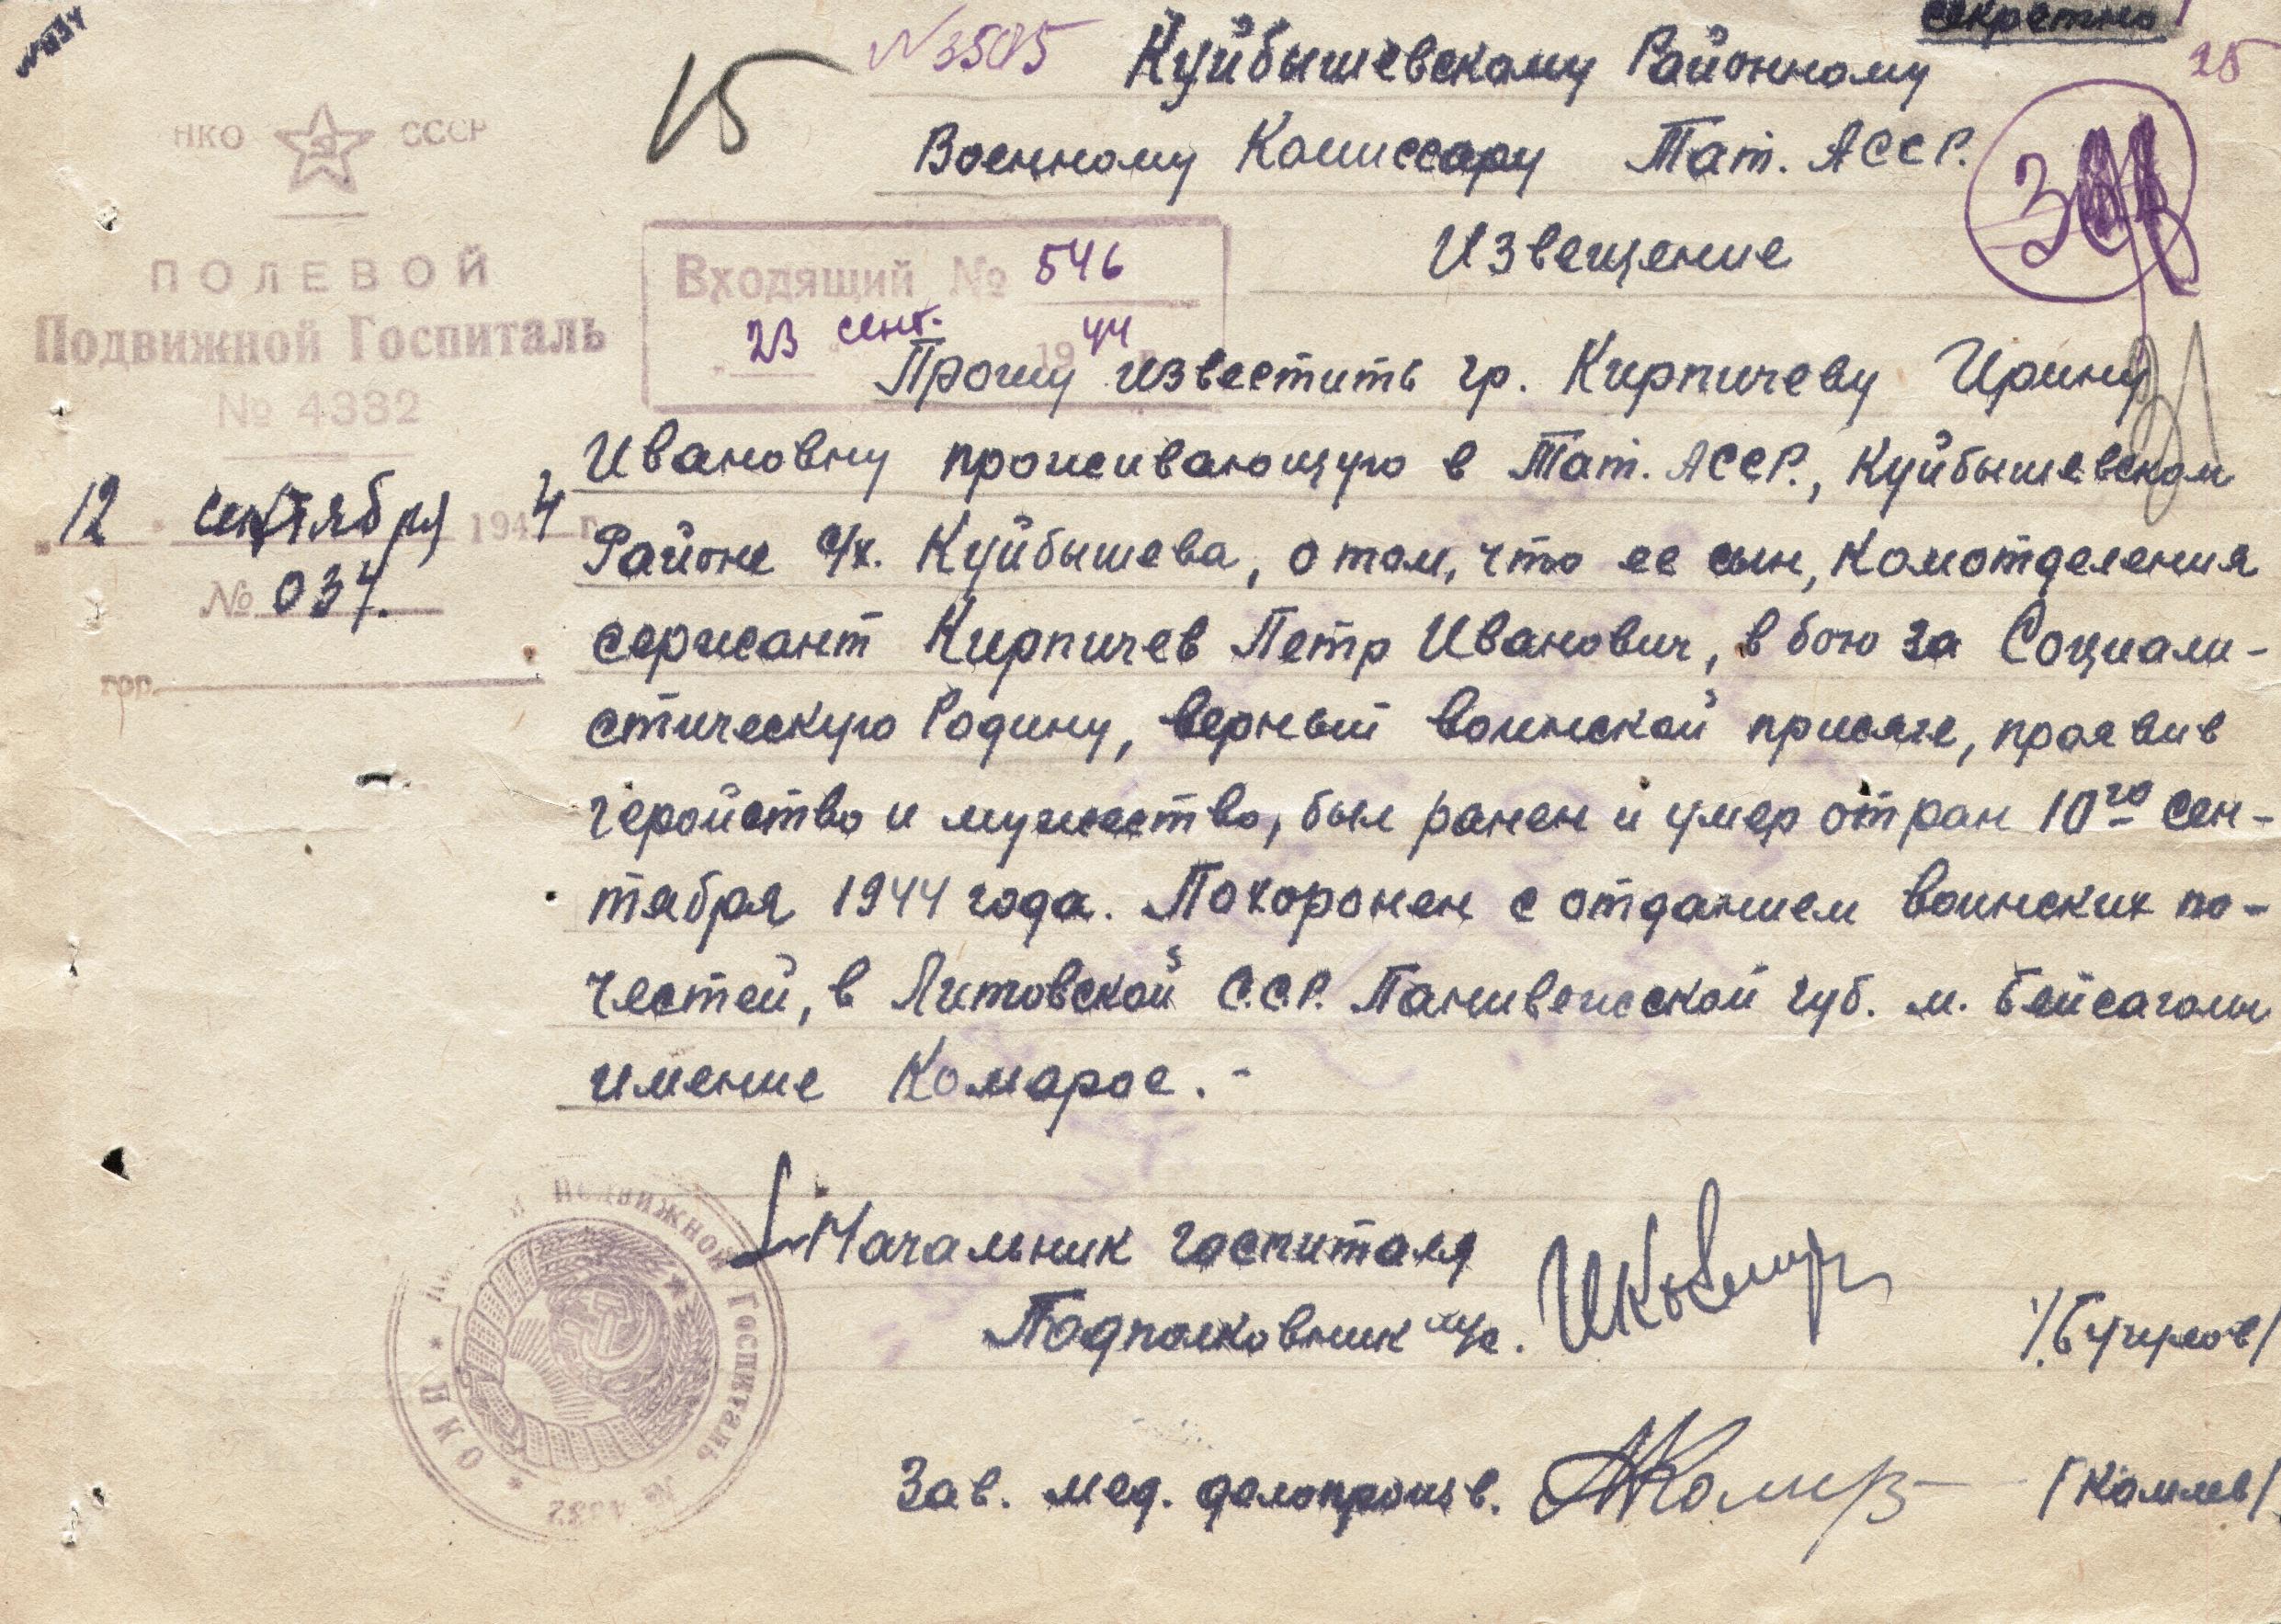 секретно
№3505
25
15
Куйбышевскому Районному
Военному Комиссару Тат. АССР.
НКО СССР
ПОЛЕВОЙ
Подвижной Госпиталь
№ 4332
"12" сентября 1944 г.
№ 034.
гор.
Входящий № 546
"23" сент. 1944
Извещение
Прошу известить гр. Кирпичеву Ирину
Ивановну проживающую в Тат. АССР., Куйбышевском
Районе с/х. Куйбышева, о том, что ее сын, комотделения
сержант Кирпичев Петр Иванович, в бою за Социали-
стическую Родину, верный воинской присяге, проявив
геройство и мужество, был ранен и умер от ран 10го сен-
тября 1944 года. Похоронен с отданием воинских по-
честей, в Литовской С.С.Р. Паневежской губ. м. Бейсаголы
имение Комарое.-
Начальник госпиталя
Подполковник м/с.
Зав. мед. делопроизв.
Подвижной Госпиталь № 4332
НКО